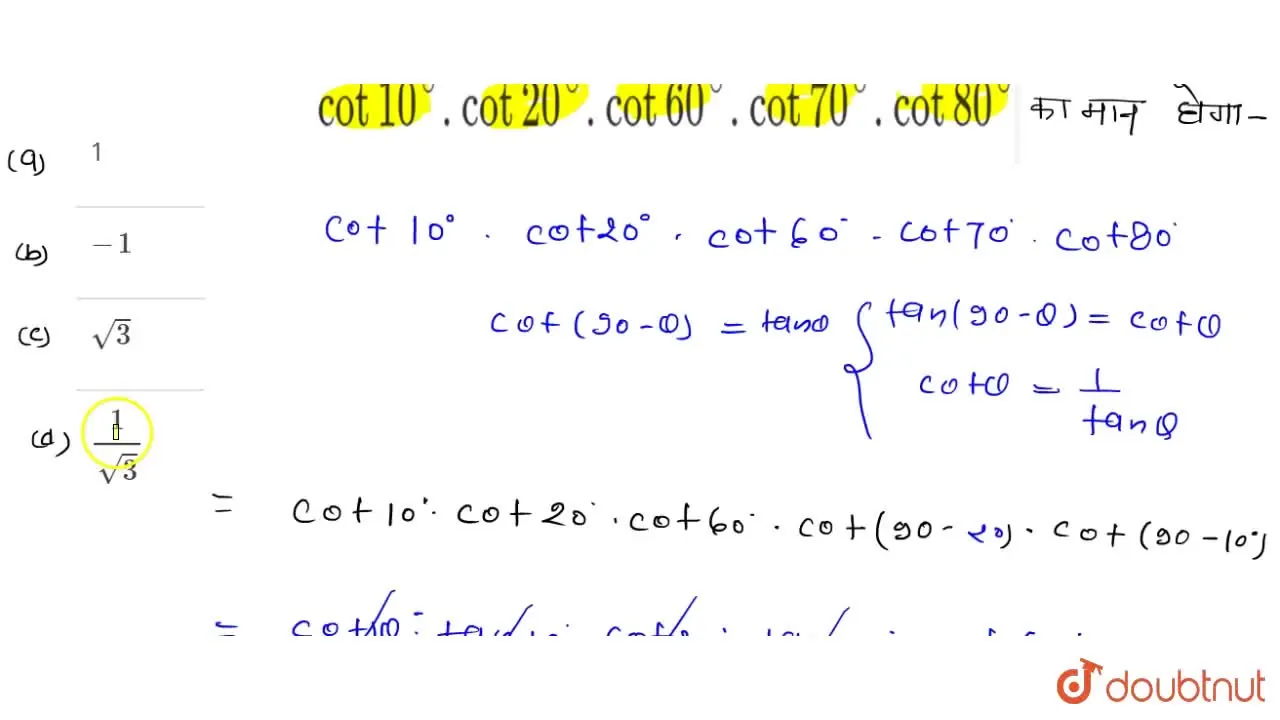 cot 10° . cot 20° . cot 60° . cot 70° . cot 80° का मान होगा-
(a) 1
(b) -1
(c) √3
(d) 1/√3
cot 10° . cot 20° . cot 60° - cot 70° . cot 80°
cot (90-θ) = tanθ { tan(90-θ) = cotθ
cotθ = 1/tanθ
= cot 10° . cot 20° . cot 60° . cot (90 - 20) . cot (90 - 10°)
=
doubtnut